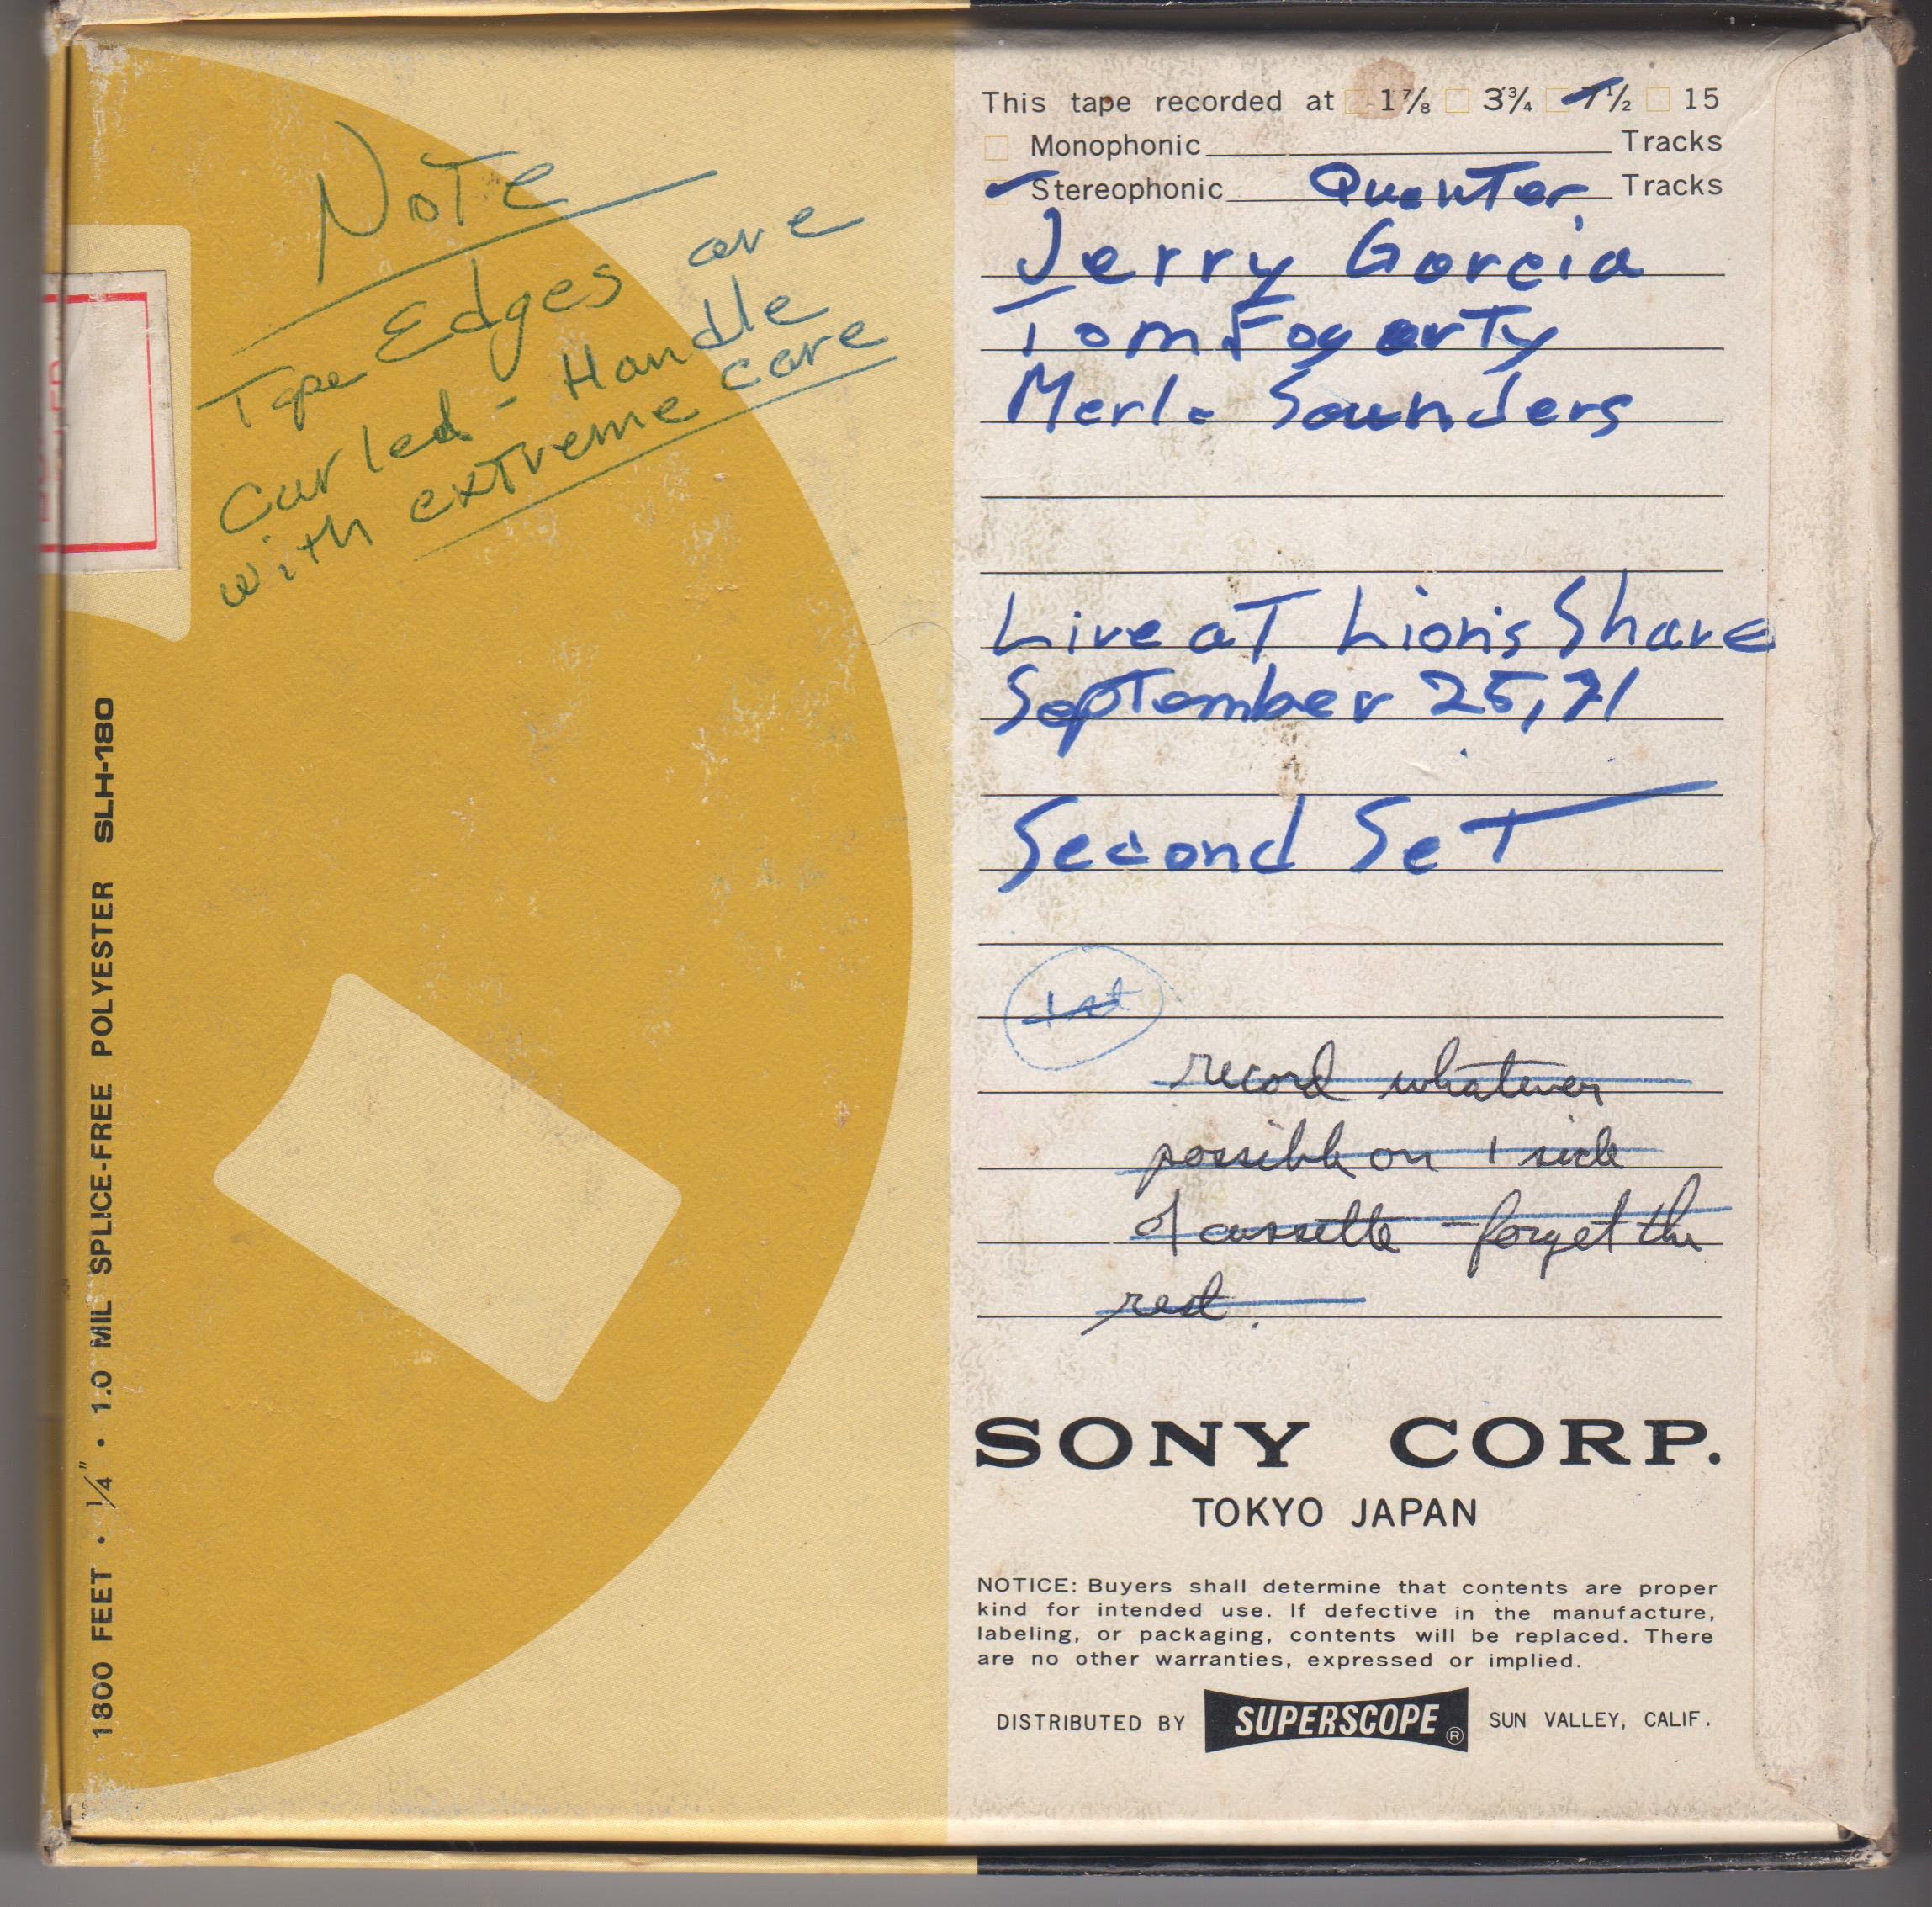 Note
Tape Edges are
Curled - Handle
with extreme care
1800 FEET • 1/4" • 1.0 MIL SPLICE-FREE POLYESTER SLH-180
This tape recorded at 1 7/8 3 3/4 7 1/2 15
Monophonic Tracks
Stereophonic Quarter Tracks
Jerry Garcia
Tom Fogerty
Merle Saunders
Live at Lion's Share
September 25, 71
Second Set
1st
record whatever
possible on 1 side
of cassette - forget the
rest.
SONY CORP.
TOKYO JAPAN
NOTICE: Buyers shall determine that contents are proper
kind for intended use. If defective in the manufacture,
labeling, or packaging, contents will be replaced. There
are no other warranties, expressed or implied.
DISTRIBUTED BY SUPERSCOPE ® SUN VALLEY, CALIF.